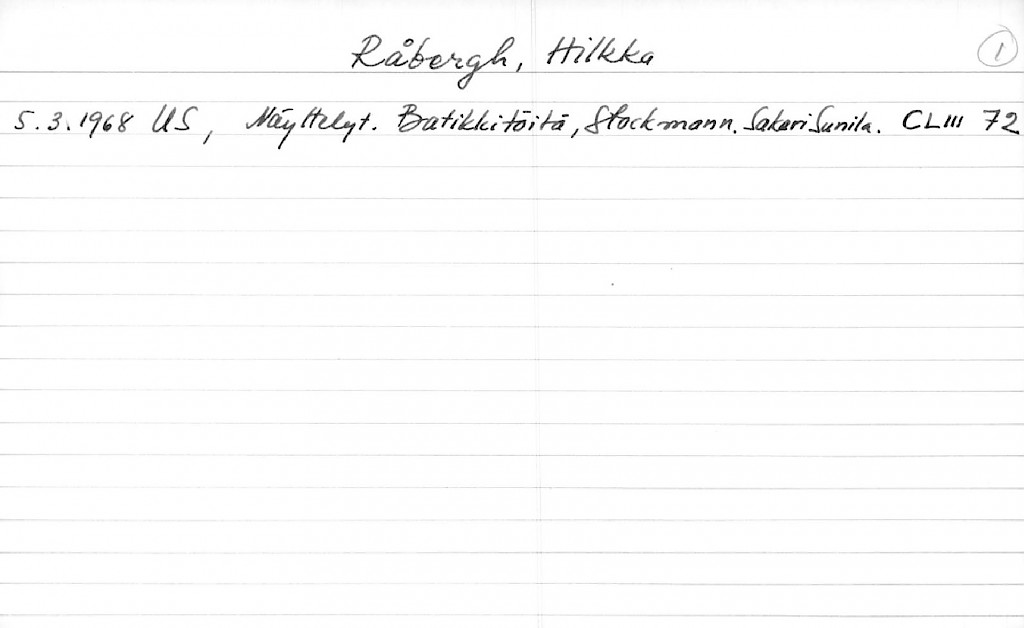 Råbergh, Hilkka
1
5.3.1968 US, Näyttelyt. Batikkitöitä, Stockmann. Sakari Sunila. CLIII 72